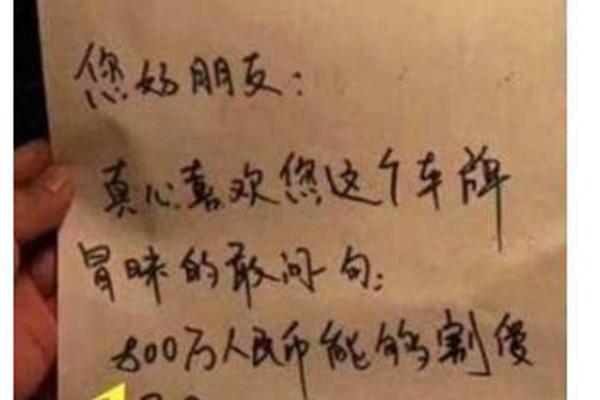 您好朋友：
真心喜欢您这个车牌
冒昧的敢问一句：
800万人民币能够割爱